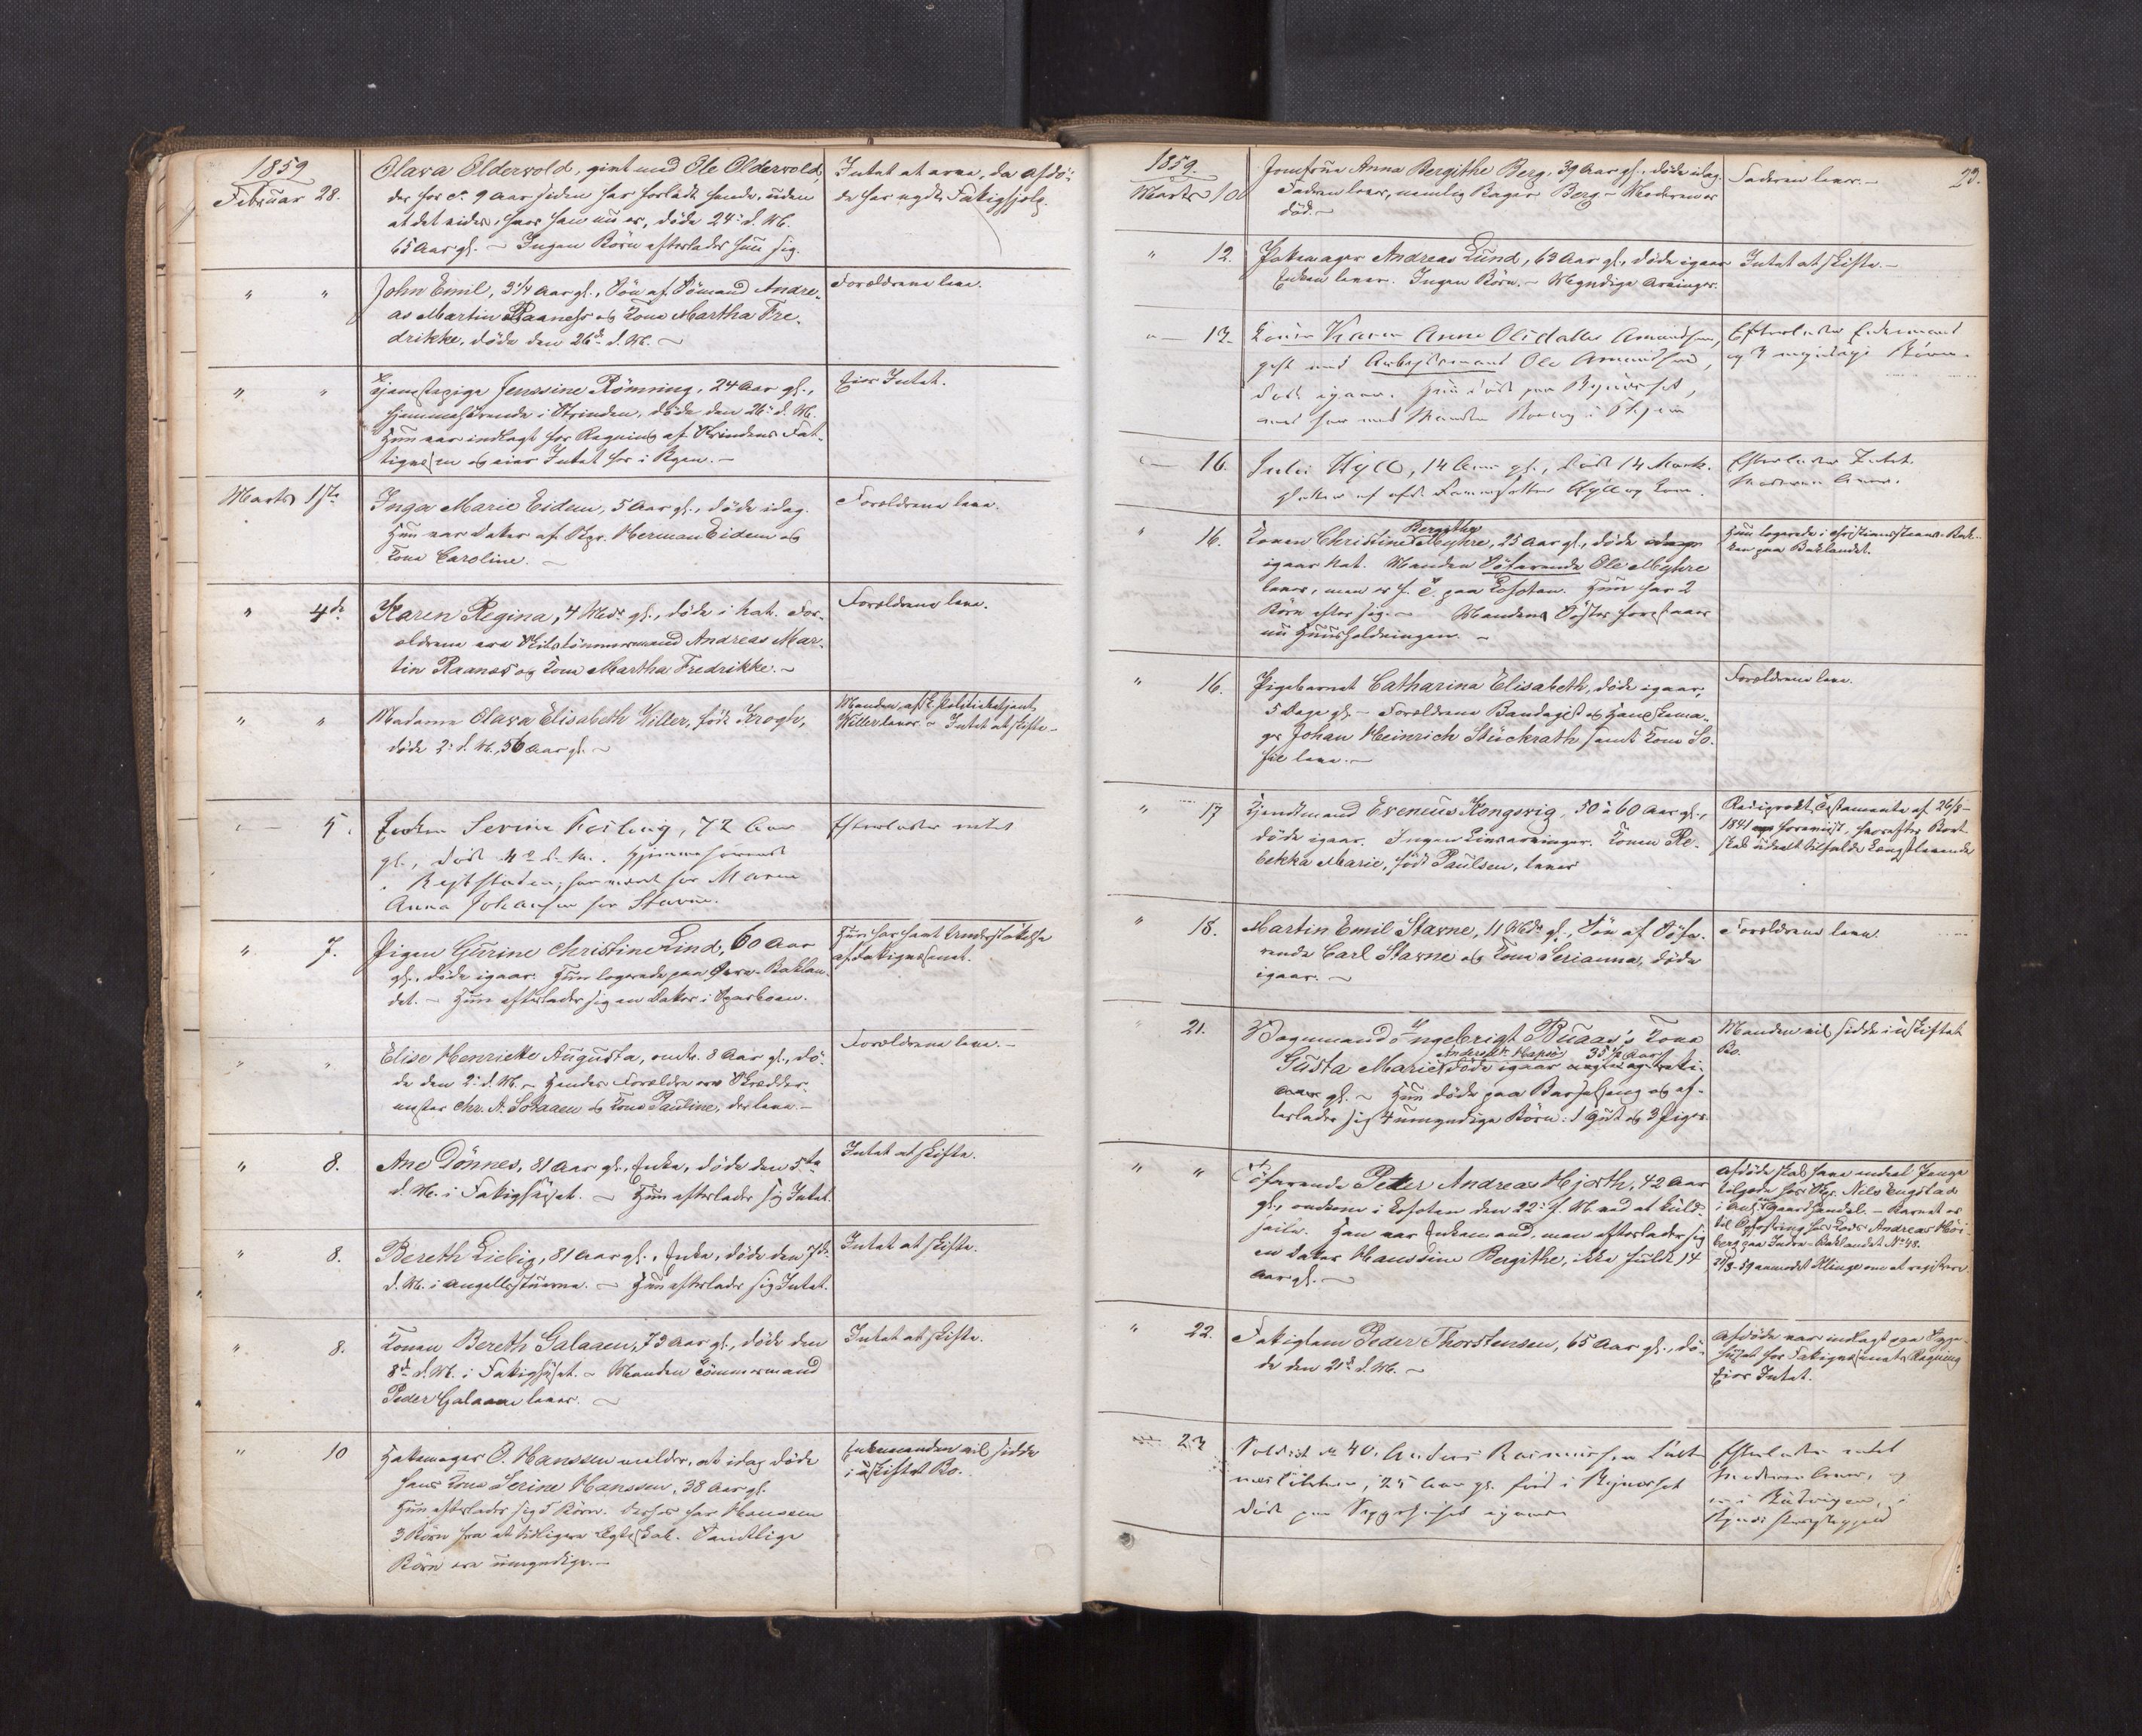 1859
Februar 28.
Olava Oldervold, givt med Ole Oldervold,
der for ca. 9 Aar siden har forladt hende, uden
at det vides, hvor han nu er, døde 24: d. M.
65 Aar gl. – Ingen Börn efterlader hun sig.
Intet at arve, da afdö-
de har nydt Fatighjelp.
" "
John Emil, 3 1/4 Aar gl., Sön af Sömand Andre-
as Martin Raaness og Kone Martha Fre-
drikke, døde den 26de d. M. –
Forældrene leve.
" "
Tjenestepige Jenssine Rönning, 24 Aar gl.,
hjemmehörende i Strinden, døde den 26: d. M.
Hun var indlagt for Regning af Strindens Fat-
tigvæsen og eier Intet her i Byen. –
Eier Intet.
Marts 1ste
Inga Marie Eidem, 5 Aar gl., døde idag.
Hun var Datter af Herman Eidem og
Kone Caroline. –
Forældrene leve.
" 4de
Karen Regina, 4 Mdr. gl., døde i Nat. For-
ældrene ere Skibstömmermand Andreas Mar-
tin Raanes og Kone Martha Fredrikke. –
Forældrene leve.
" "
Madame Olava Elisabeth Willer, født Krogh,
døde 2: d. M., 56 Aar gl. –
Manden, afsk. Politiebetjent
Willer lever. – Intet at skifte –
5.
Enken Serine 72 Aar
gl., død 4de d. M. Hjemmehørende
Anna Johansen
Efterlader intet
" 7.
Pigen Gurine Christine Lind, 60 Aar
gl., døde igaar. Hun logerede paa Övre-Baklan-
det. – Hun efterlader sig en Datter i
Hun har havt Understöttelse
af Fatigvæsenet.
" "
Elise Henriette Augusta, omtr. 8 Aar gl., dö-
de den 2: d. M. – Hendes Forældre ere Skrædder-
mester Chr. A. Solaaen og Kone Pauline, der leve. –
Forældrene leve. –
" 8.
Ane Dönnes, 81 Aar gl., Enke, døde den 5te
d. M. i Fatighuset. – Hun efterlader sig Intet.
Intet at skifte.
" 8.
Bereth Liebig, 81 Aar gl., Enke, døde den 7de
d. M. i Angellsstuerne. – Hun efterlader sig Intet.
Intet at skifte.
" 8.
Konen Bereth Galaaen, 73 Aar gl., døde den
8de d. M. i Fatighuset. – Manden Tömmermand
Peder Galaaen lever. –
Intet at skifte.
" 10
Hattemager O. Hanssen melder, at idag döde
hans Kone Serine Hanssen, 38 Aar gl.
Hun efterlader sig 5 Börn. Derhos har Hanssen
3 Börn fra et tidligere Egteskab. Samtlige
Börn ere umyndige. –
Enkemanden vil sidde
i uskiftet Bo.
1859.
23.
Marts 10
Jomfrue Anna Bergithe Berg, 39 Aar gl., døde idag.
Faderen lever, nemlig Bager Berg. – Moderen er
død. –
Faderen lever. –
" 12.
Andreas Lund, 63 Aar gl., døde igaar
Enken lever. Ingen Börn. – Myndige Arvinger.
Intet at skifte. –
" 13.
Konen Karen Anna Amundsen,
gift med Arbeidsmand Ole Amundsen,
død igaar.
Efterlader Enkemand
og 3 Börn.
16.
Hyll, 14 Aar gl., død 14 Marts.
og Kone.
Efterlader Intet.
Moderen lever.
" 16.
Konen Christine Bergithe Myhre, 25 Aar gl., døde
igaar Nat. Manden Söfarende Ole Myhre
lever, men er f. T. paa Lofoten. Hun har 2
Börn efter sig. – Mandens Söster forestaaer
nu Huusholdningen. –
Hun logerede i
paa Baklandet.
" 16.
Pigebarnet Catharina Elisabeth, døde igaar,
5 Dage gl. – Forældrene Bandagist og Handskema-
ger Johan Heinrich Stückrath samt Kone So-
fie leve. –
Forældrene leve.
" 17
Evenius Kongsvig, 50 à 60 Aar gl.,
døde igaar. Ingen Livsarvinger. Konen Re-
bekka Marie, født Paulsen, lever
Reciprokt Testamente af 26/8 –
1841 forevist, hvorefter Boet
skal udeelt tilfalde Længstlevende
" 18.
Martin Emil Stavne, 11 Mdr gl., Sön af Söfa-
rende Carl Stavne og Kone Serianna, døde
igaar. –
Forældrene leve.
" 21.
Vognmand Ingebrigt Buaas's Kone
Gusta Marie Andersdr. døde igaar 35 1/2 Aar
gl. – Hun døde paa Barselseng og ef-
terlader sig 4 umyndige Börn: 1 Gut og 3 Piger.
Manden vil sidde i uskiftet
Bo.
" "
Söfarende Peter Andreas Hjorth, 42 Aar
gl., omkom i Lofoten den 22: f. M. ved at kuld-
seile. Han var Enkemand, men efterlader sig
en Datter Hanssine Bergithe, ikke fuldt 14
Aar gl. –
Afdöde skal have endeel Penge
tilgode hos Nils Engstad
– Barnet er
til Opfostring hos Andreas Höi-
berg paa Indre-Baklandet No 48.
anmodet Klinge om at registrere
" 22.
Fatiglem Peder Thorstensen, 65 Aar gl., dö-
de den 21de d. M. –
Afdöde var indlagt paa Syge-
huset for Fatigvæsenets Regning
Eier Intet.
23
Soldat No 40. Anders Rasmussen
25 Aar gl. født i Bynesset
død paa Sygehuset igaar
Efterlader intet
Moderen lever,